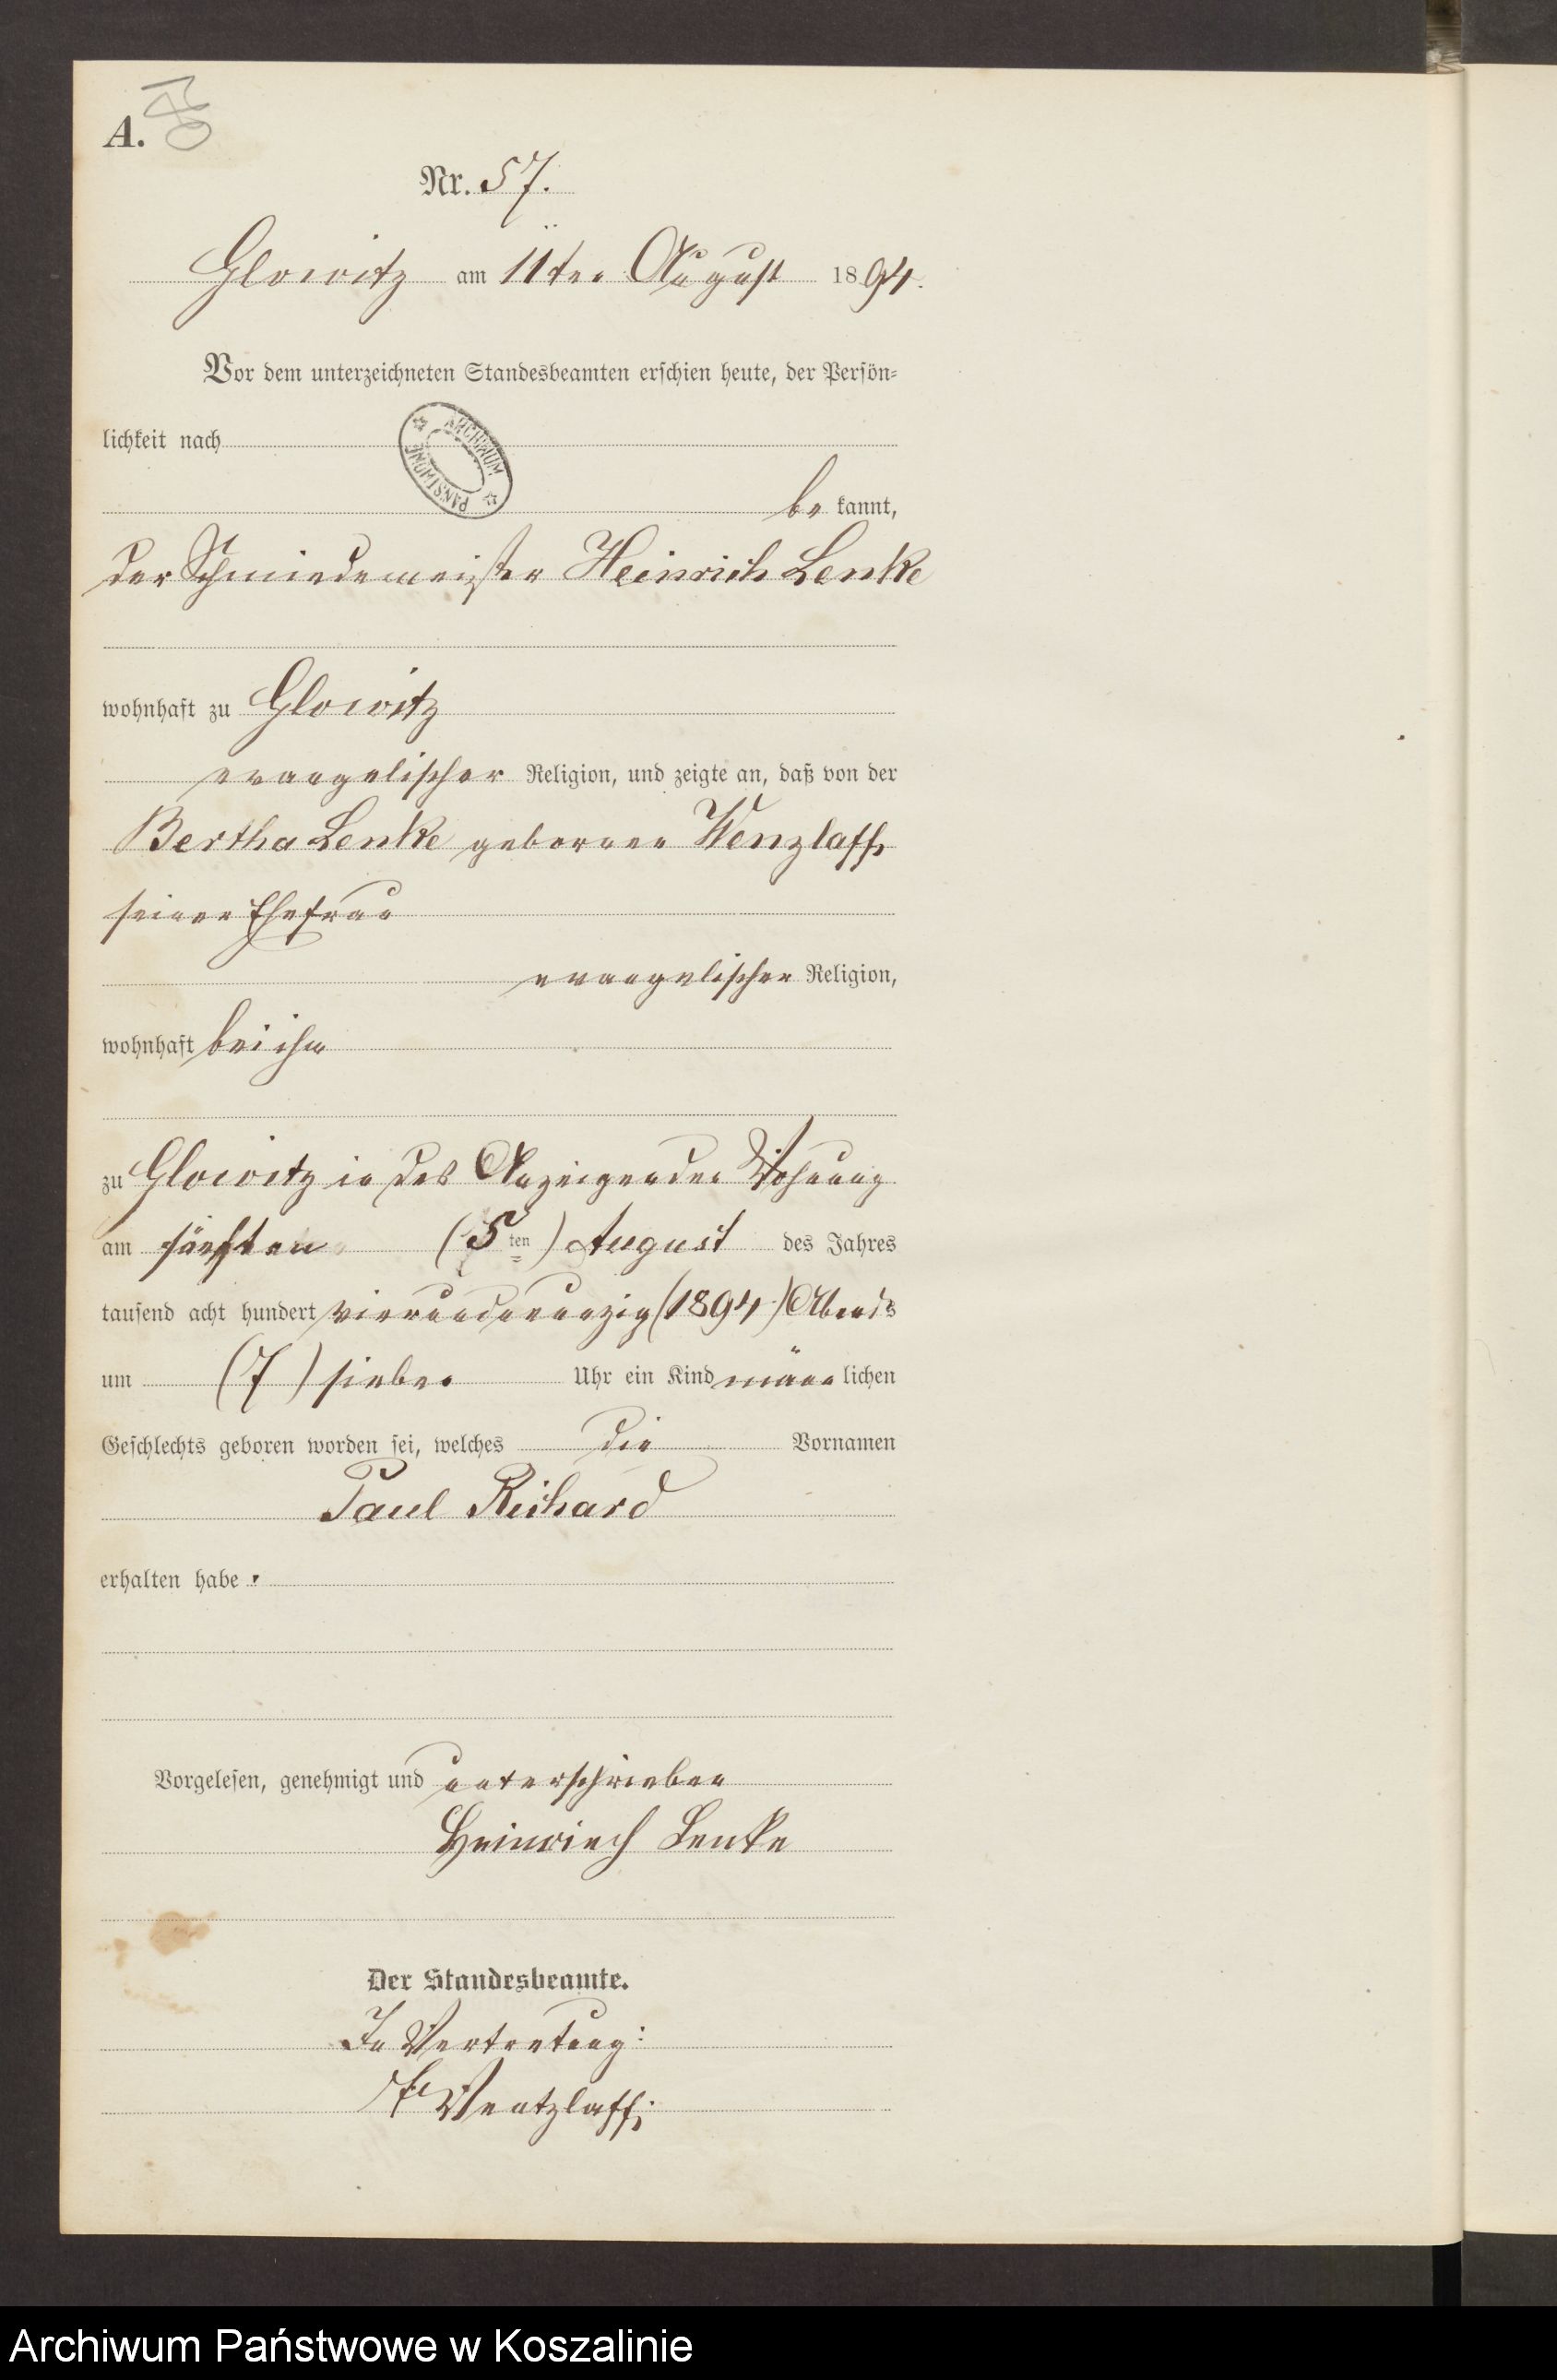 A.
Nr. 57.
Glowitz am 11ten August 1894.
Vor dem unterzeichneten Standesbeamten erschien heute, der Persön-
lichkeit nach
ARCHIWUM PAŃSTWOWE
be kannt,
der Schmiedemeister Heinrich Lenke
wohnhaft zu Glowitz
evangelischer Religion, und zeigte an, daß von der
Bertha Lenke geborenen Wenzlaff,
seiner Ehefrau
evangelischer Religion,
wohnhaft bei ihm
zu Glowitz in des Anzeigenden Wohnung
am fünften (5 ten) August des Jahres
tausend acht hundert vierundneunzig (1894) Abends
um (7) sieben Uhr ein Kind männlichen
Geschlechts geboren worden sei, welches die Vornamen
Paul Richard
erhalten habe.
Vorgelesen, genehmigt und unterschrieben
Heinriech Lenke
Der Standesbeamte.
In Vertretung:
Wentzlaff.
Archiwum Państwowe w Koszalinie